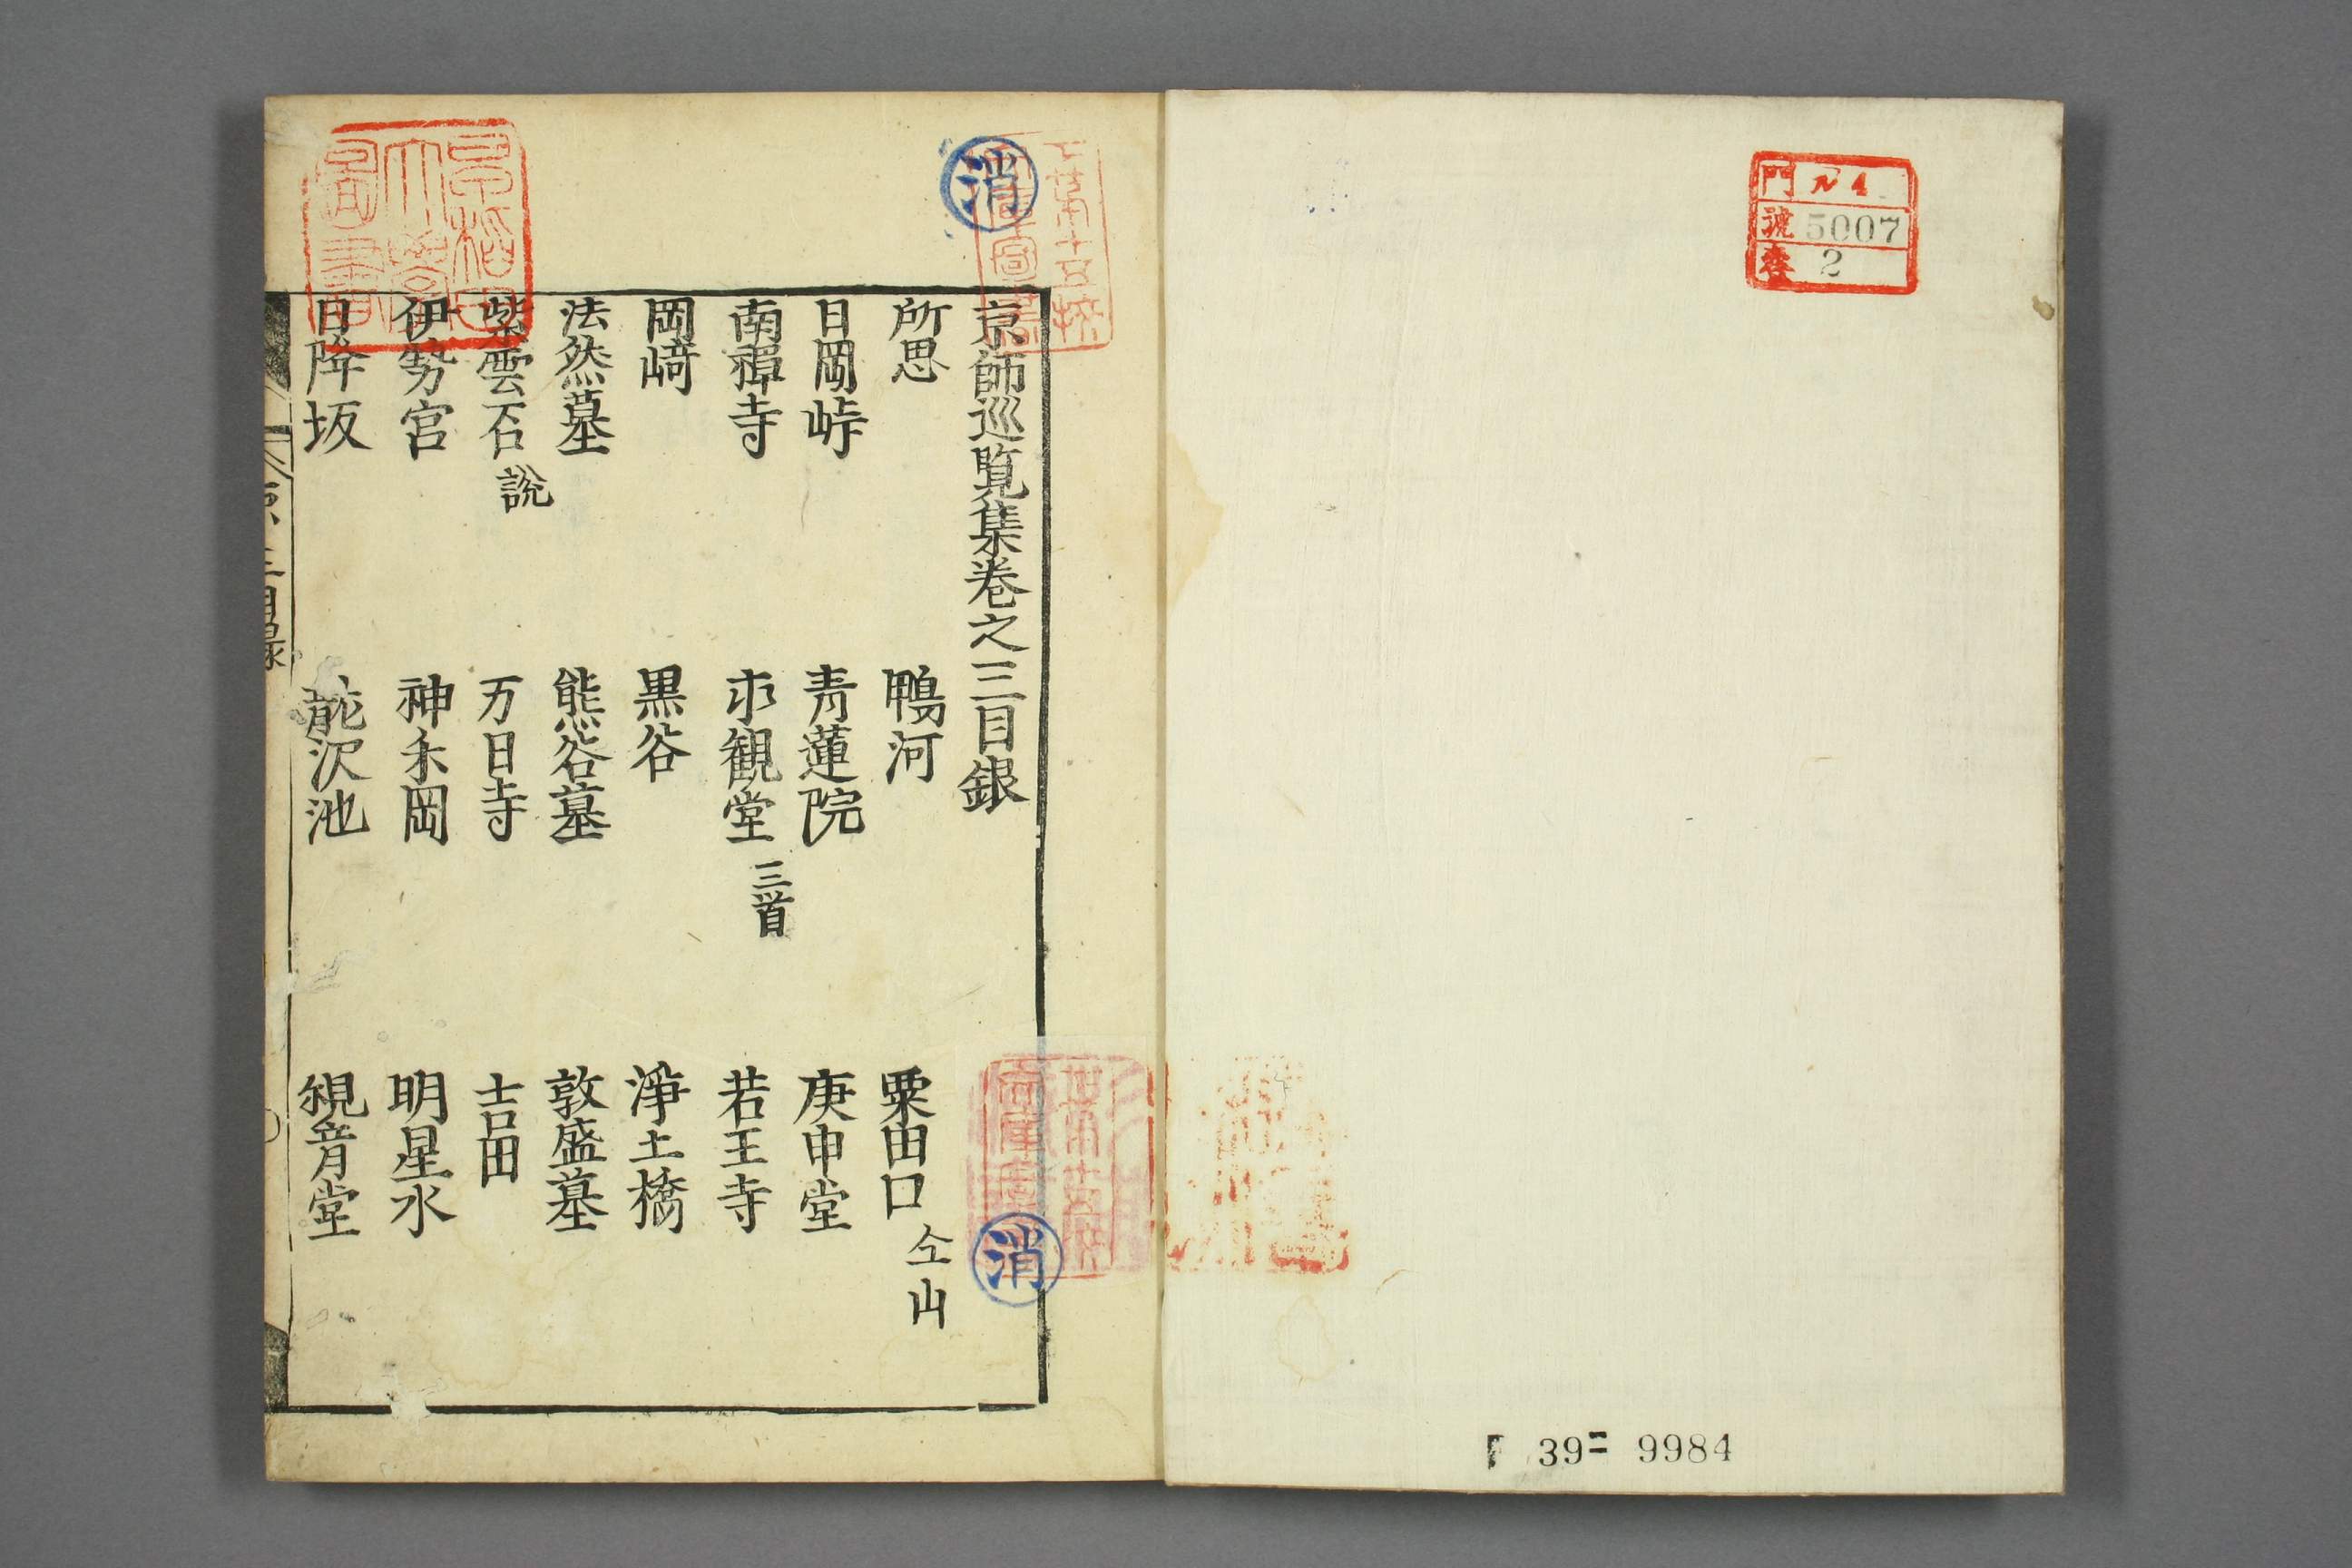 門 ル4
號 5007
巻 2
39- 9984
消
京師巡覧集巻之三目録
所思 鴨河 粟田口 仝山
日岡峠 青蓮院 庚申堂
南禅寺 永観堂 三首 若王寺
岡崎 黒谷 浄土橋
法然墓 熊谷墓 敦盛墓
紫雲石 説 万日寺 吉田
伊勢宮 神楽岡 明星水
日降坂 龍沢池 観音堂
消